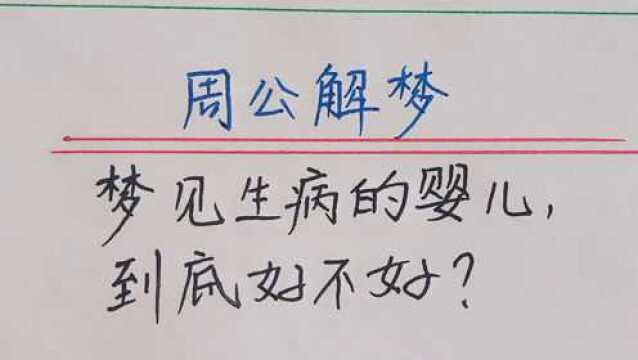 周公解梦
梦见生病的婴儿,
到底好不好?